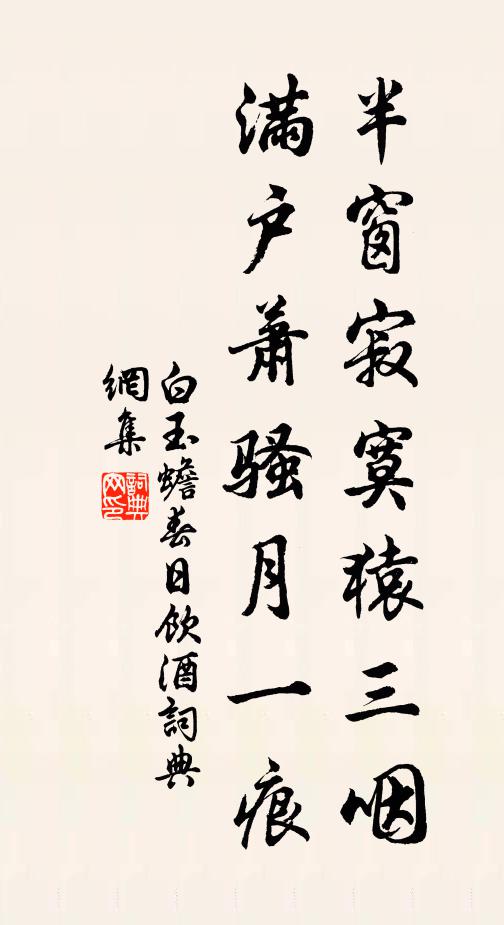 半窗寂寞猿三咽
满户萧骚月一痕
白玉蟾春日饮酒词典
網集
詞典
网印